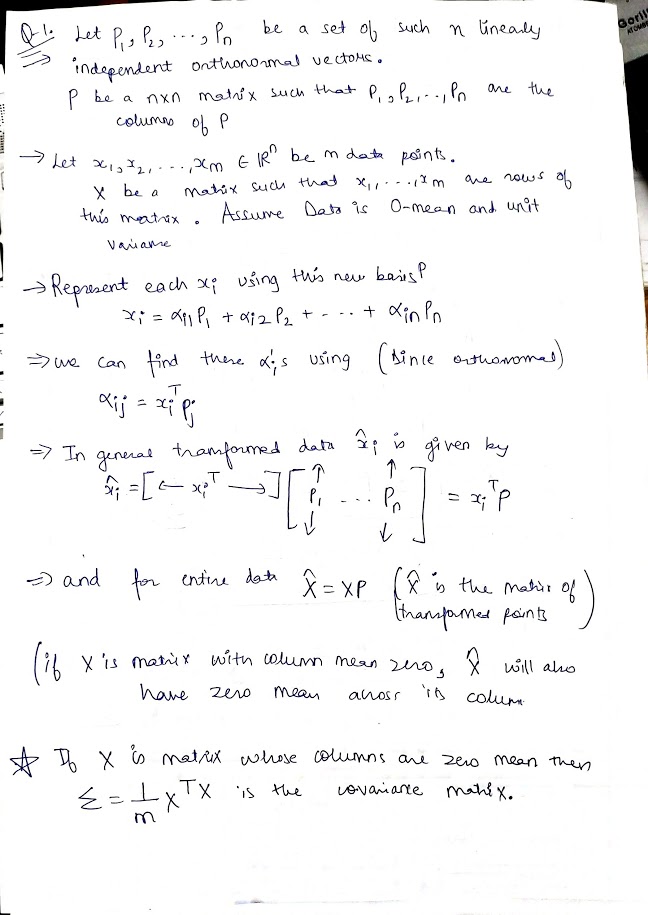 Q-1. Let P₁, P₂, ..., Pₙ be a set of such n linearly
⇒ independent orthonormal vectors.
P be a nxn matrix such that P₁, P₂, .., Pₙ are the
columns of P
→ Let x₁, x₂, ..., xₘ ∈ ℝⁿ be m data points.
X be a matrix such that x₁, ..., xₘ are rows of
this matrix. Assume Data is 0-mean and unit
variance
→ Represent each xᵢ using this new basis P
xᵢ = αᵢ₁P₁ + αᵢ₂P₂ + - ... + αᵢₙPₙ
⇒ we can find these αᵢ's using (since orthonormal)
αᵢⱼ = xᵢᵀ pⱼ
⇒ In general transformed data x̂ᵢ is given by
x̂ᵢ = [← xᵢᵀ →] [↑ P₁ ↓ ... ↑ Pₙ ↓] = xᵢᵀP
⇒ and for entire data X̂ = XP (X̂ is the matrix of
transformed points)
(if X is matrix with column mean zero, X̂ will also
have zero mean across its column
☆ If X is matrix whose columns are zero mean then
Σ = 1/m XᵀX is the covariance matrix.